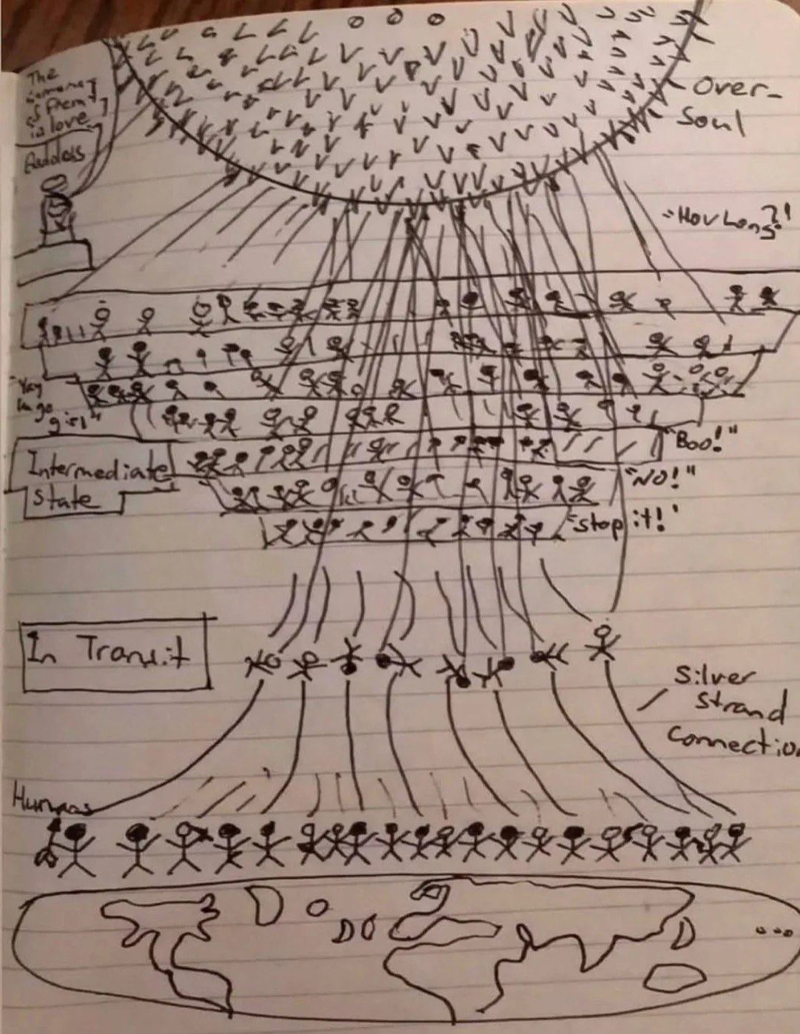 The
is love
Goddess
Over-
Soul
"How Long?!
"Yay
girl"
"Boo!"
Intermediate
State
"NO!"
"Stop it!"
In Transit
Silver
Strand
Connection
Humans